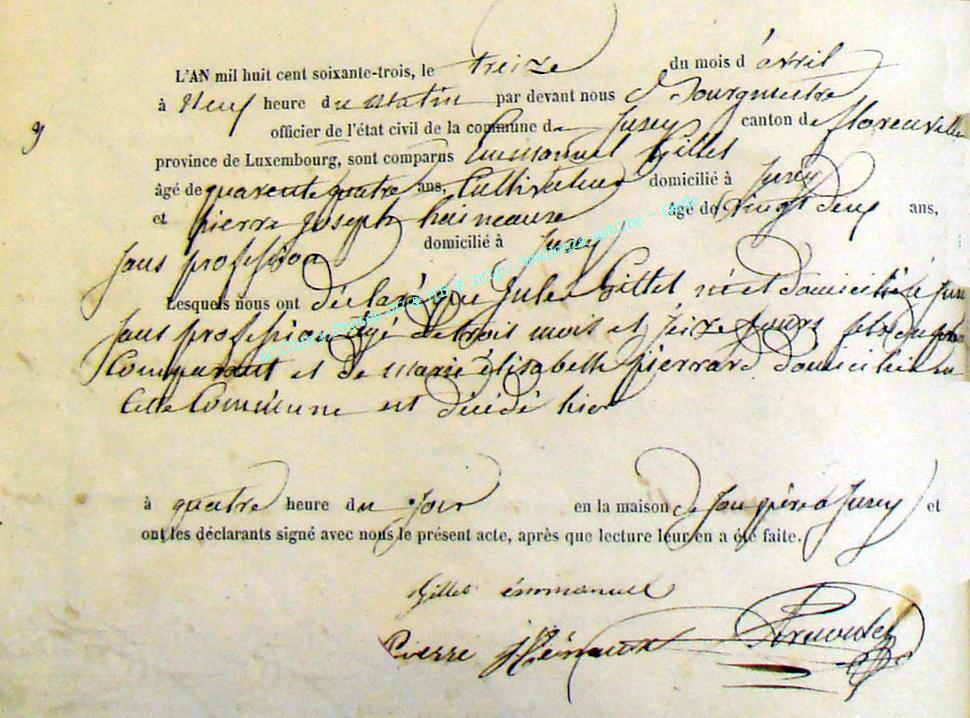 L'AN mil huit cent soixante-trois, le treize du mois d'avril
à Neuf heure du Matin par devant nous Bourgmestre
officier de l'état civil de la commune de Jusey canton de florenville
9
province de Luxembourg, sont comparus Emmanuel Gillet
âgé de quarente quatre ans, Cultivateur domicilié à Jusey
et pierre joseph haineaux âgé de vingt deux ans,
sans profession domicilié à Jusey
Lesquels nous ont déclaré que Jules Gillet né et domicilié à
sans profession âgé de trois mois et seize jours fils du
Comparant et de marie élisabeth pierrard domiciliés en
cette Commune est décédé hier
à quatre heure du jour en la maison de son père à Jusey et
ont les déclarants signé avec nous le présent acte, après que lecture leur en a été faite.
Gillet émmanuel
Pierre